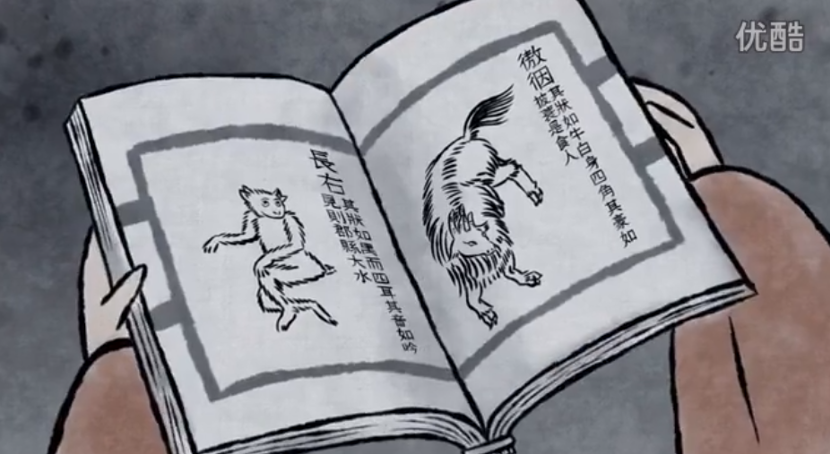 优酷
其狀如牛白身四角其豪如
披蓑是食人
長右
其狀如禺而四耳其音如吟
見則郡縣大水